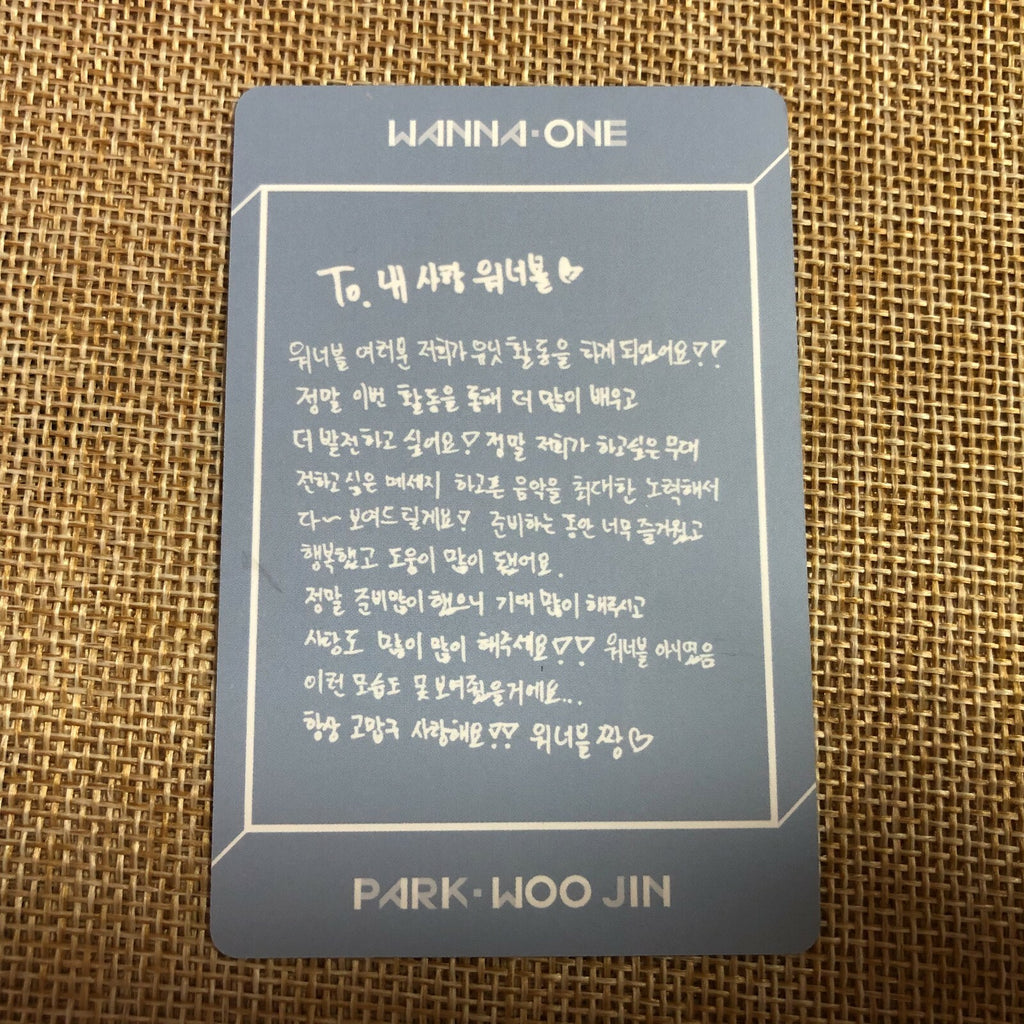 WANNA·ONE
To. 내 사랑 워너블♡
워너블 여러분 저희가 유닛 활동을 하게 되었어요♡♡
정말 이번 활동을 통해 더 많이 배우고
더 발전하고 싶어요♡ 정말 저희가 하고싶은 무대
전하고 싶은 메세지 하고픈 음악을 최대한 노력해서
다~ 보여드릴게요♡ 준비하는 동안 너무 즐거웠고
행복했고 도움이 많이 됐어요.
정말 준비많이 했으니 기대 많이 해주시고
사랑도 많이 많이 해주세요♡♡ 워너블 아니였음
이런 모습도 못보여줬을거에요...
항상 고맙구 사랑해요♡♡ 워너블 짱♡
PARK·WOO JIN